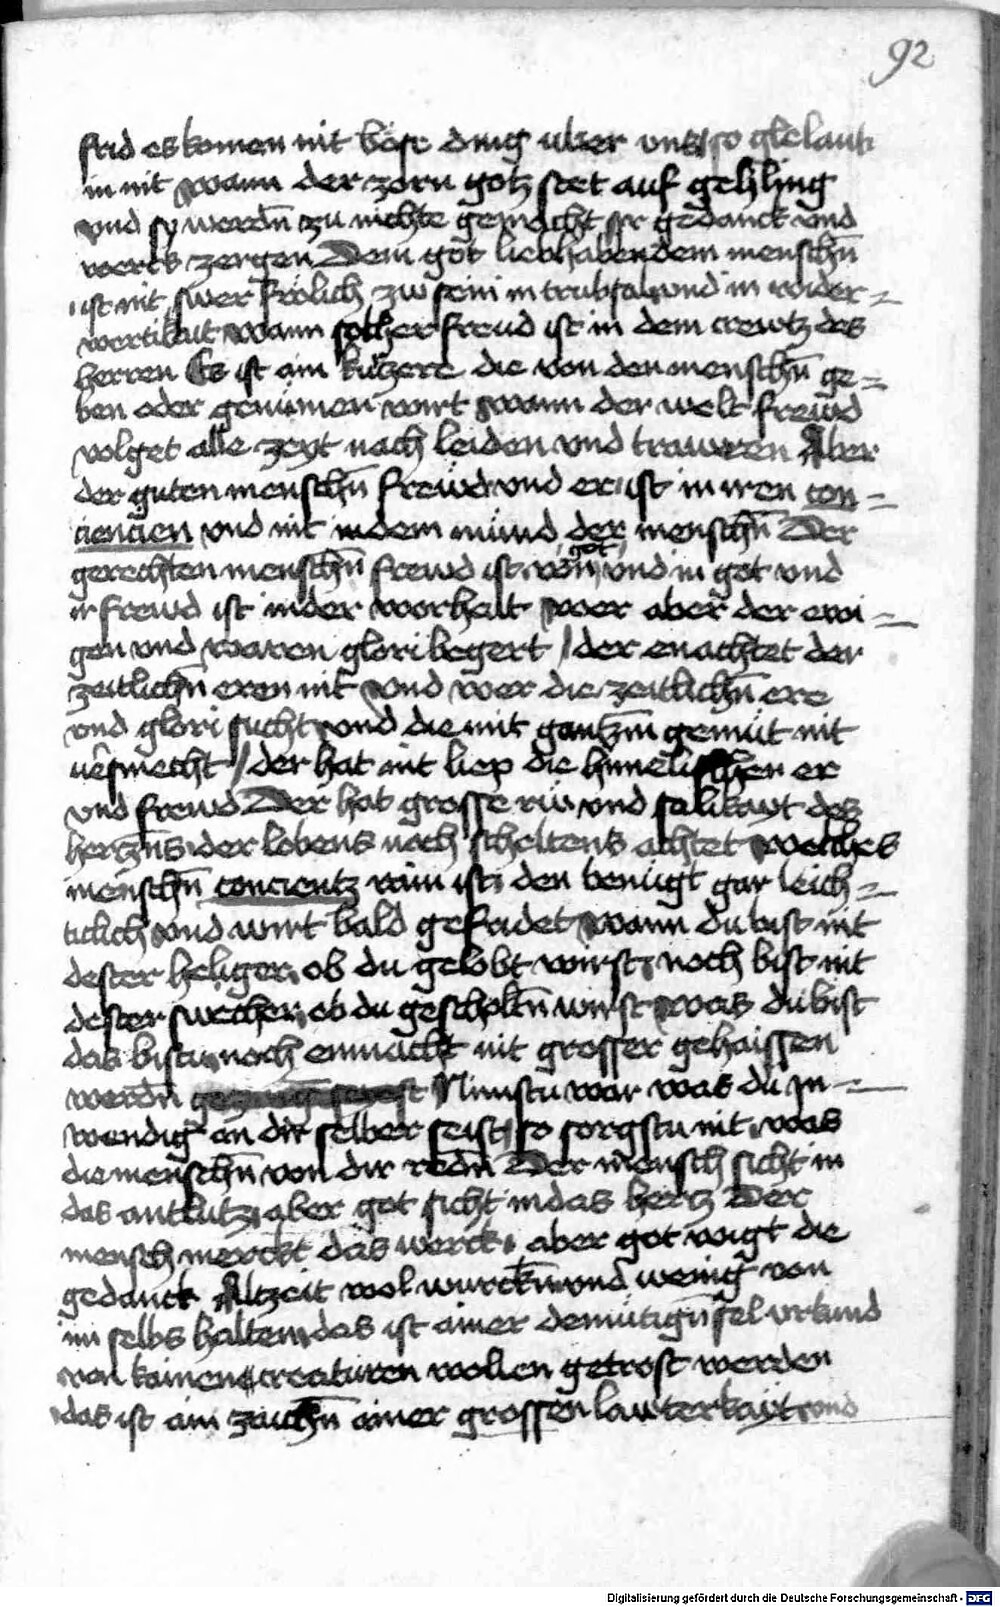 92
frid es komen nit böse ding uber uns so gelaub
in nit wann der zorn gotz stet auf gehling
vnd sy werdn̄ zu nichte gemacht ir gedanck vnd
werck zergen Dem got liebhabendem menschn̄
ist nit swer frölich zw sein in trubsal vnd in wider=
wertikait wann solher freud ist in dem crewtz des
herren Es ist ain kurzere die von den menschn̄ ge=
ben oder genumen wirt wann der welt frewd
volget alle zeyt nach leiden vnd trawren Aber
der guten menschn̄ frewd vnd er ist in iren con=
ciencien vnd nit in dem mund der menschn̄ Der
gerechten menschn̄ frewd ist von got vnd in got vnd
ir freud ist in der worheit wer aber der ewi=
gen vnd waren glori begert / der enachtet der
zeitlichn̄ eren nit Vnd wer die zeitlichn̄ ere
vnd glori sucht vnd die mit gantzm̄ gemüt nit
versmecht / der hat nit liep die himelischen er
vnd freud Der hat grosse ru vnd salikayt des
hertzns der lobens noch scheltens achtet welhes
menschn̄ concientz rain ist den benügt gar leich=
ticlich vnd wirt bald gefridet wann du bist nit
dester heliger ob du gelobt wirst noch bist nit
dester swecher ob du gescholtn̄ wirst was du bist
das bistu noch enmacht nit grosser gehaissen
werdn̄ Nimstu war was du in=
wendig an dir selber seist so sorgstu nit was
die menschn̄ von dir redn̄ Der mensch sicht in
das antlutz aber got sicht in das hertz Der
mensch merckt das werck aber got wigt die
gedanck Altzeit wol wurckn̄ vnd wenig von
im selbs halten das ist ainer demütign̄ sel vrkund
von kainen creaturen wollen getrost werden
das ist ain zaichn̄ ainer grossen lauterkayt vnd
Digitalisierung gefördert durch die Deutsche Forschungsgemeinschaft - DFG